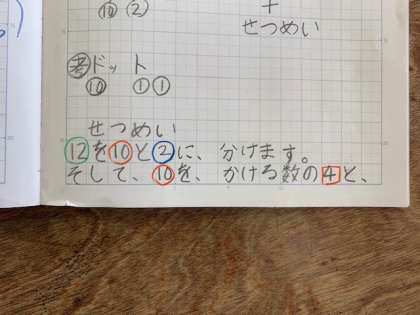 ⑩ ②
+
せつめい
考ドット
⑩ ① ①
せつめい
12を10と2に、分けます。
そして、10を、かける数の4と、